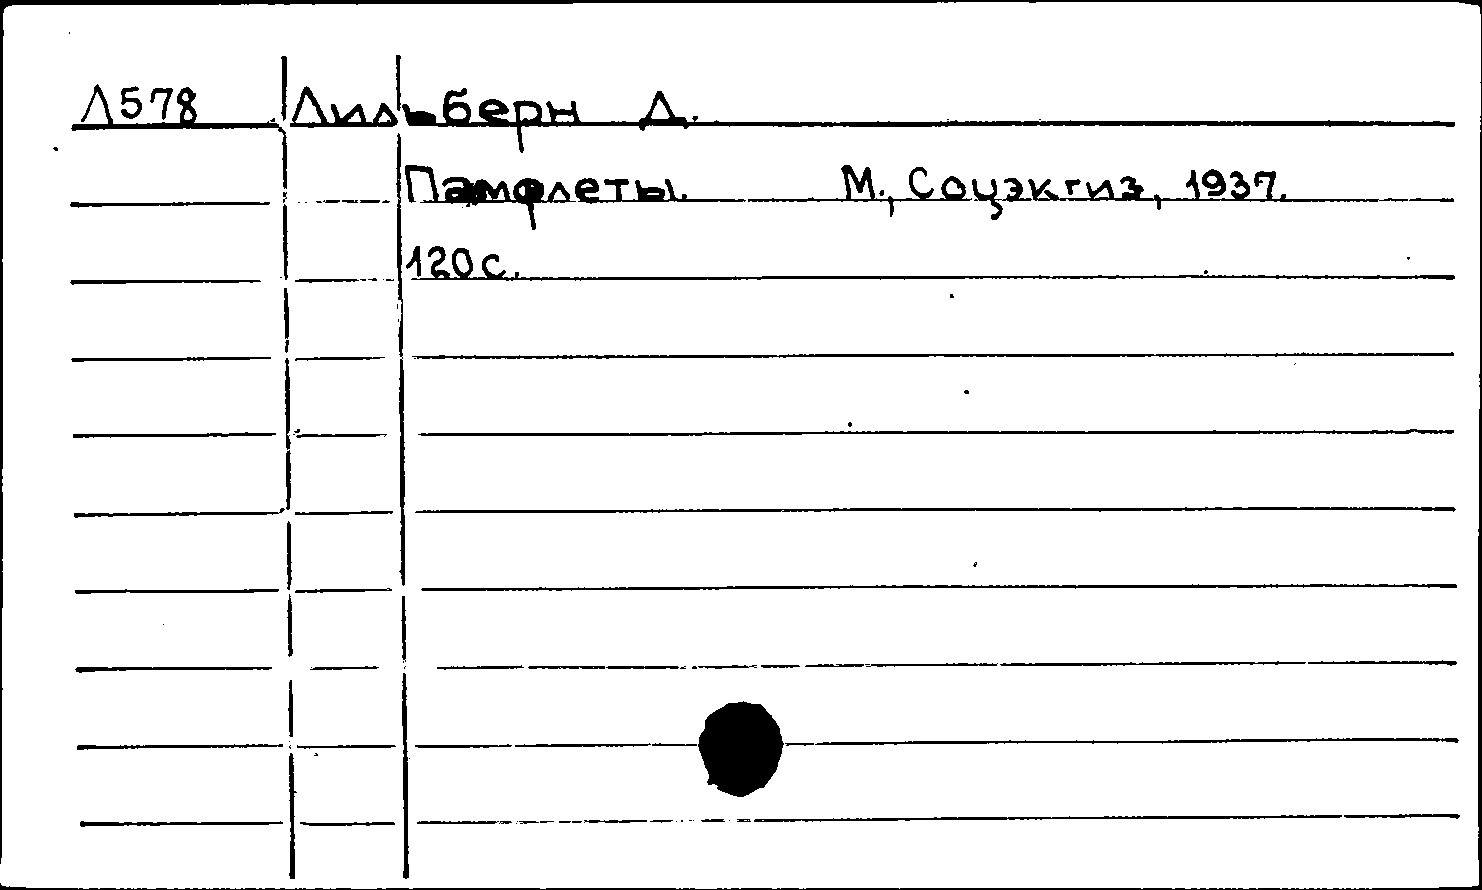 Л578 Лильберн Д.
Памфлеты. М., Соцэкгиз, 1937.
120 с.